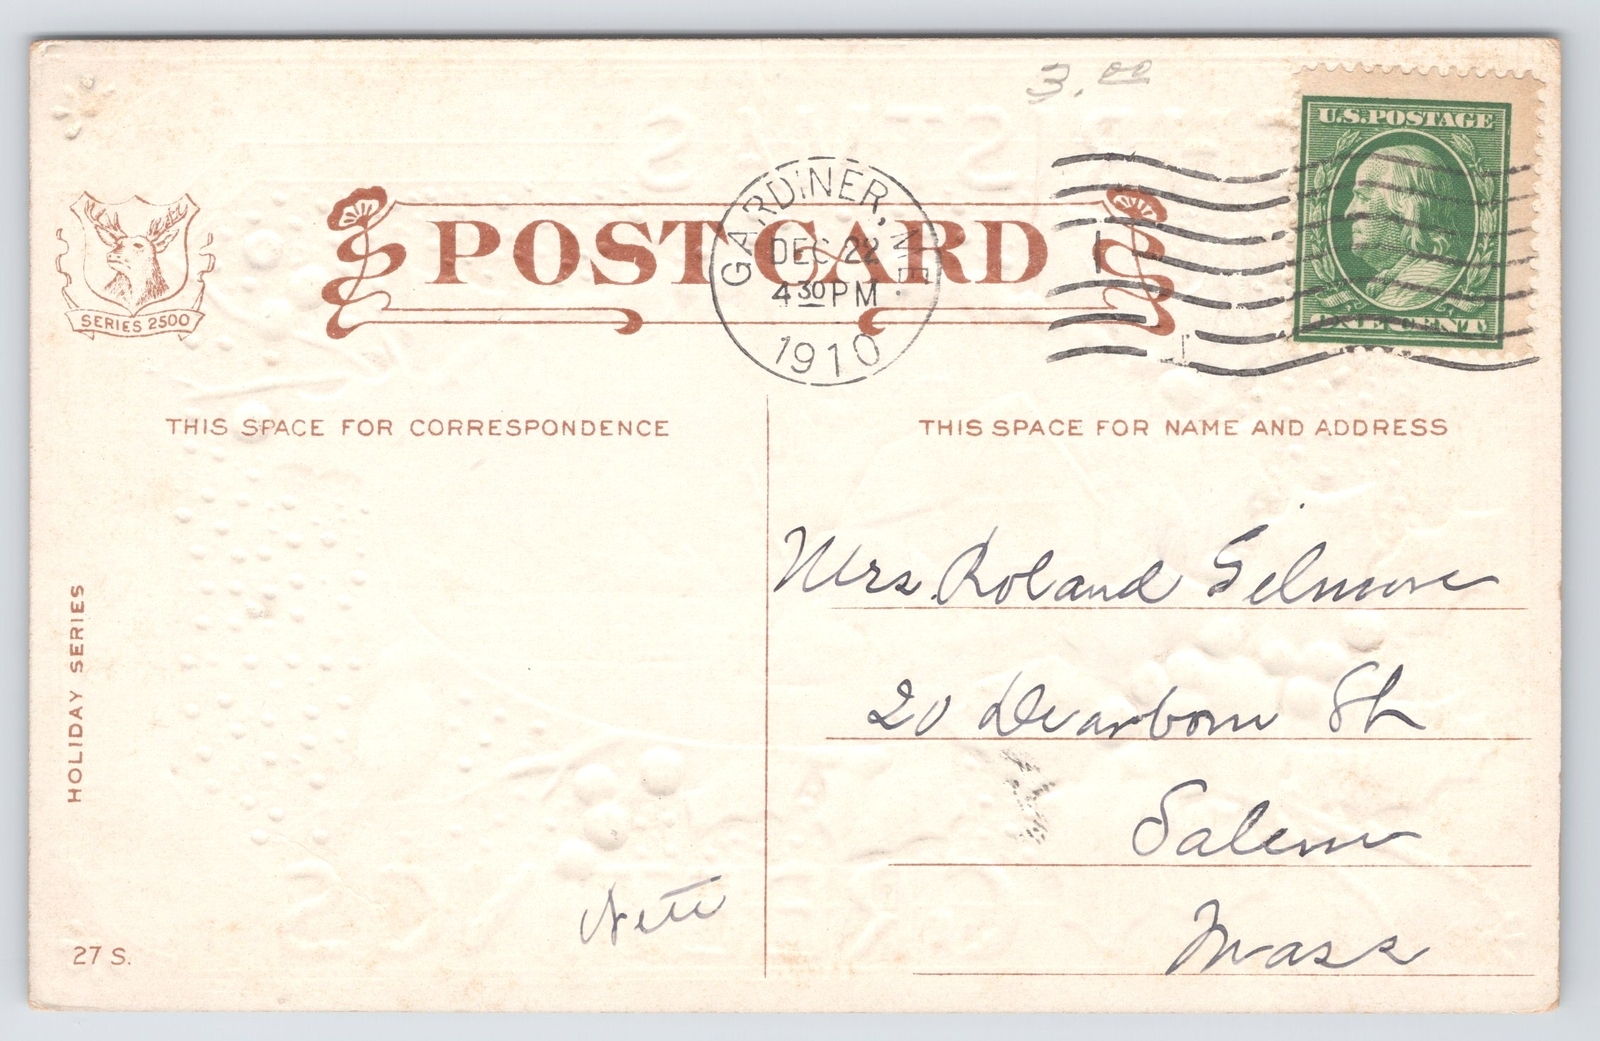 3.00
U.S. POSTAGE
ONE CENT
SERIES 2500
POST CARD
GARDINER, ME.
DEC 22
4 30 PM
1910
1
THIS SPACE FOR CORRESPONDENCE
THIS SPACE FOR NAME AND ADDRESS
Mrs. Roland Gilmore
20 Dearborn St
Salem
Mass
HOLIDAY SERIES
27 S.